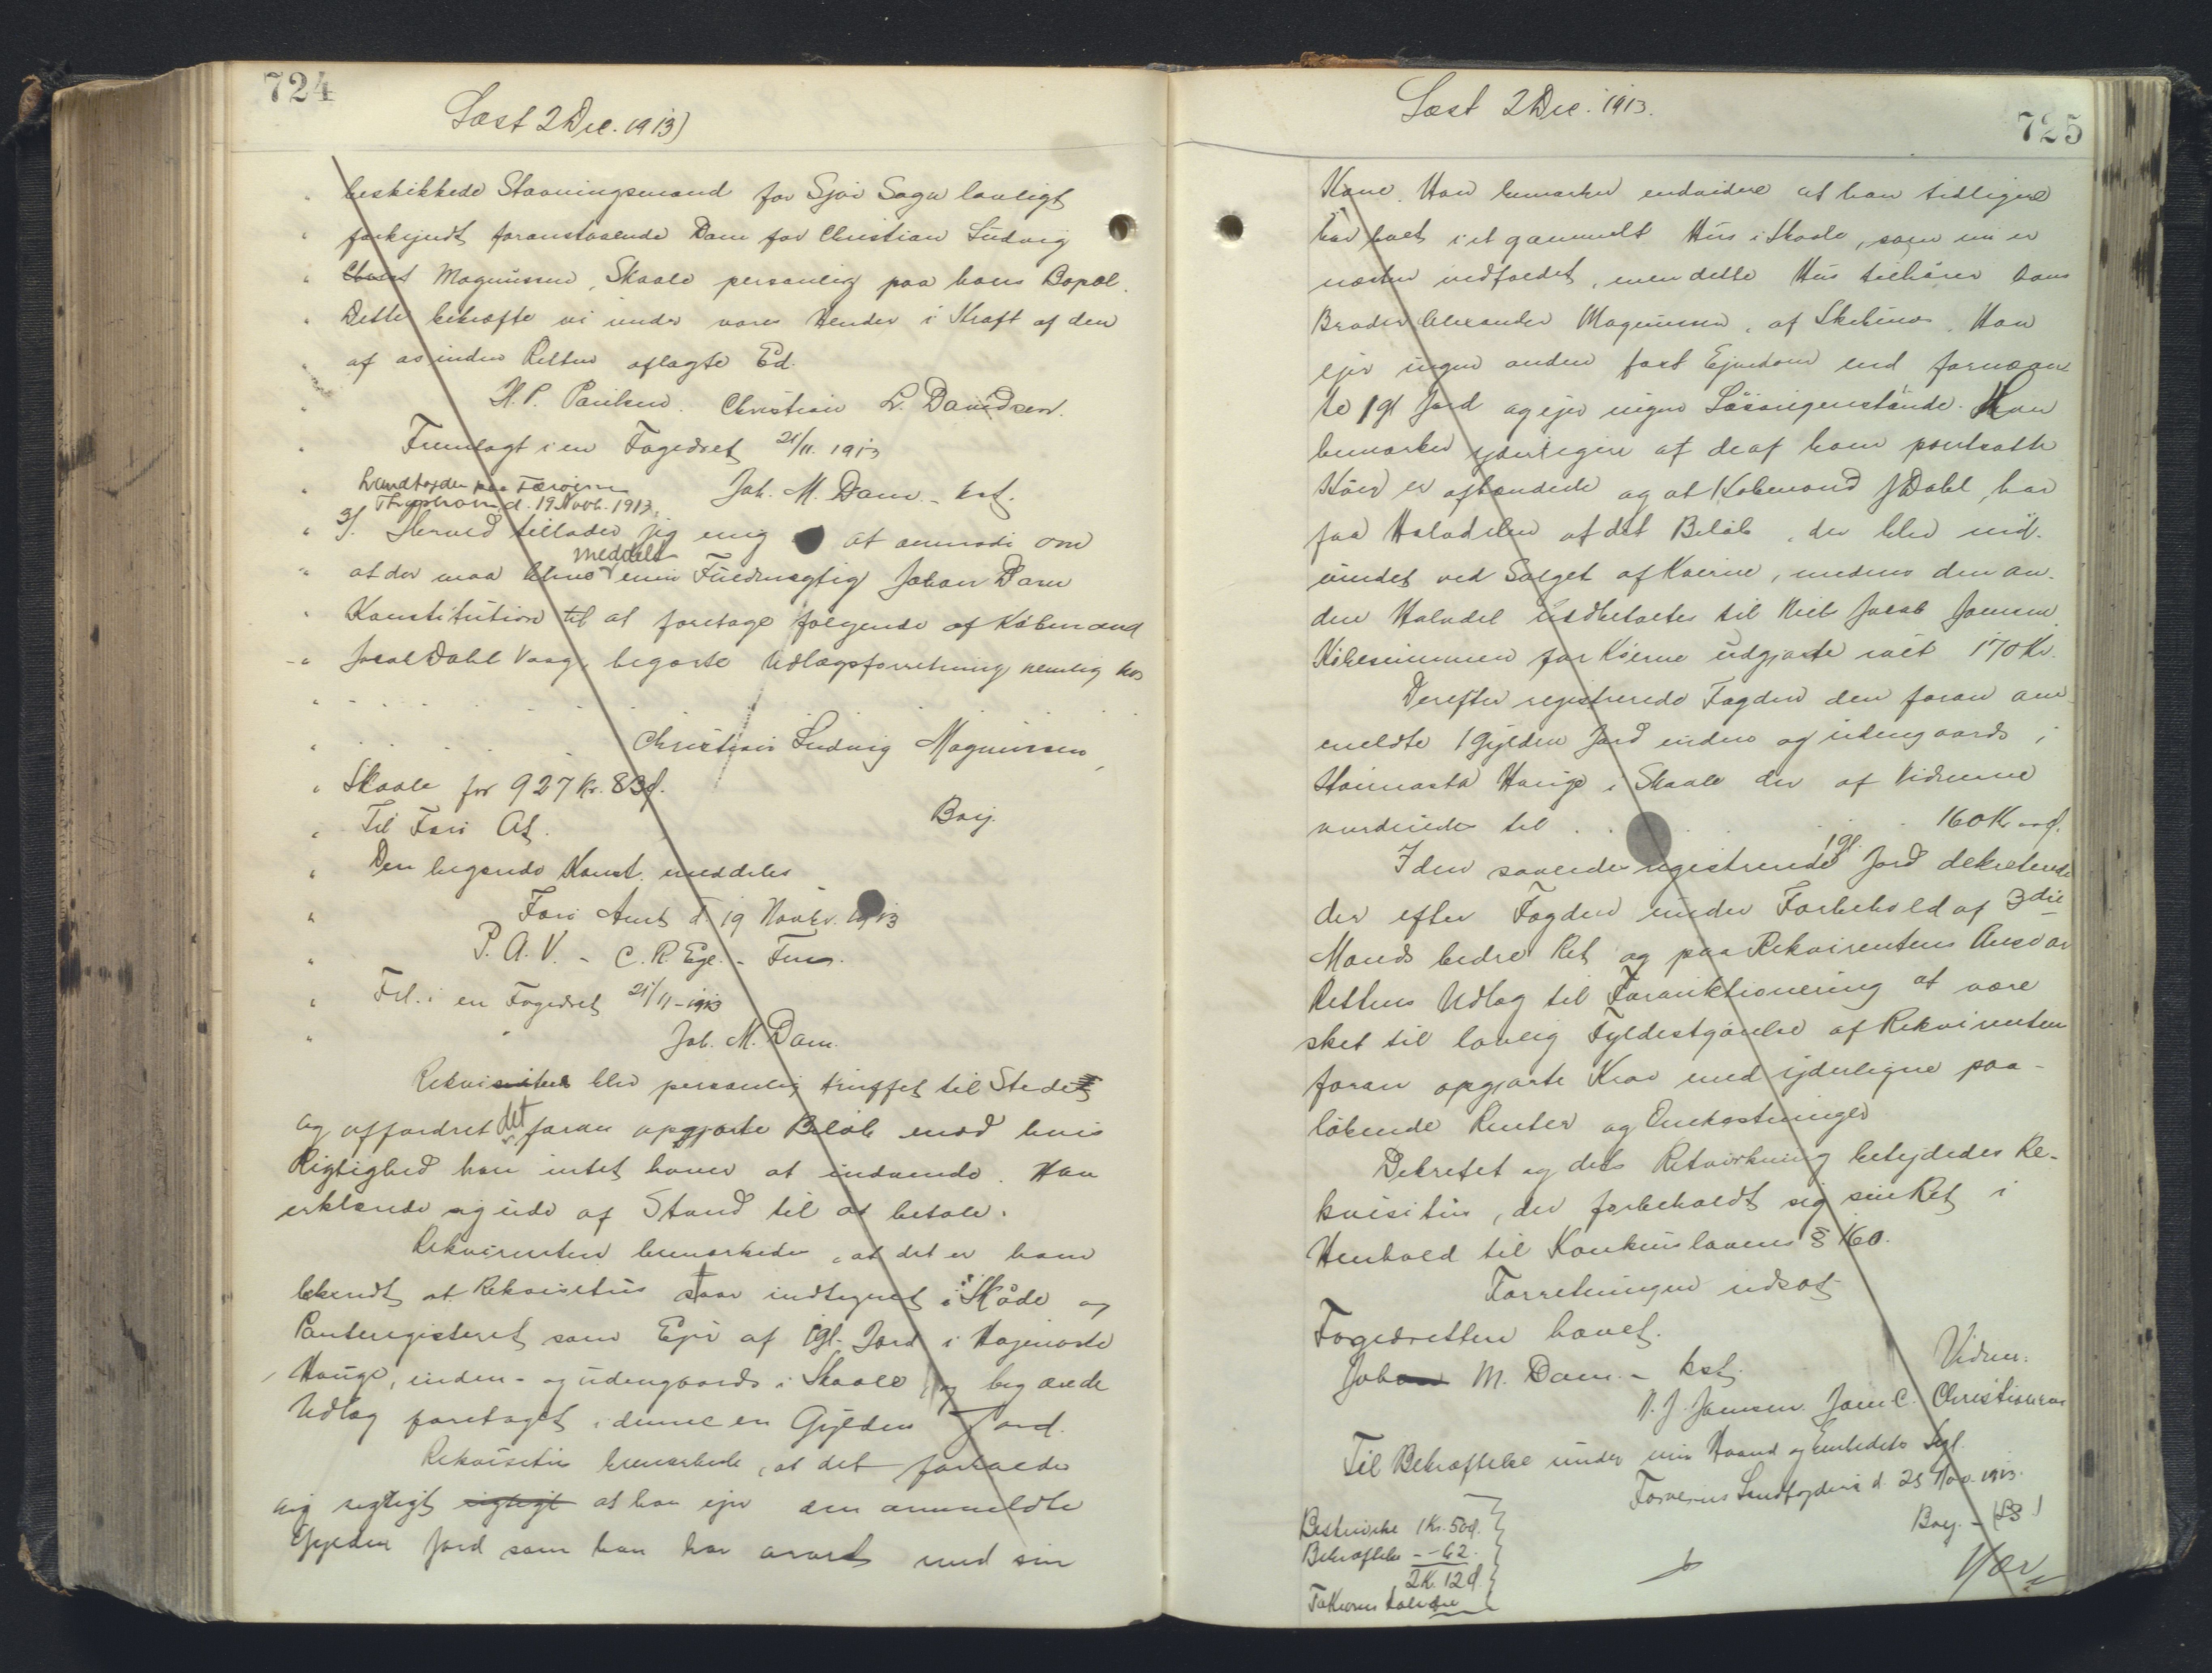 724
Læst 2 Dec. 1913)
beskikkede Stævningsmænd for Sjov Sogn lovligt
forkyndt foranstaaende Dom for Christian Ludvig
Magnussen, Skaale personlig paa hans Bopæl.
Dette bekræfte vi under vore Hænder i Kraft af den
af os inden Retten aflagte Ed.
H. P. Poulsen. Christian L. Davidsen.
Fremlagt i en Fogedret 21/11. 1913
Joh. M. Dam - kst.
Landfogden paa Færøerne
Thorshavn d. 19 Novb. 1913.
3/. Herved tillader jeg mig at anmode om
at der maa blive meddelt min Fuldmægtig Johan Dam
Konstitution til at foretage følgende af Købmand
Jocal Dahl Vaag, begærte Udlægsforretning nemlig hos
Christian Ludvig Magnussen,
Skaale for 927 Kr. 83 Ø.
Bøig.
Til Færø At.
Den begærede Konst. meddeles
Færø Amt d. 19 Novbr. 1913
P. A. V. - C. R. Ege. - Fm.
Frl. i en Fogedret 21/11 - 1913
Joh. M. Dam.
blev personlig truffet til Stede
og affordret det foran opgjorte Beløb mod hvis
Rigtighed han intet havde at indvende. Han
erklærede sig ude af Stand til at betale.
Rekvirenten bemærkede, at det er ham
bekendt at Rekvisitus staar indtegnet i Skøde og
Panteregisteret som Ejer af 1 gl. Jord i
Hauge, inden- og udengaards i Skaale og begærede
Udlæg foretaget i denne en Gylden Jord.
Rekvisitus bemærkede, at det forholder
sig rigtigt rigtigt at han ejer den anmeldte
Gylden Jord som han har arvet med sin
Læst 2 Dec. 1913.
725
Kone. Han bemærker endvidere at han tidligere
har boet i et gammelt Hus i Skaale, som nu er
næsten nedfaldet, men dette Hus tilhører hans
Broder Alexander Magnussen, af Han
ejer ingen anden fast Ejendom end fornævn-
te 1 gl Jord og ejer ingen Løsøregenstande. Han
bemærker yderligere at de af ham pantsatte
Køer er afhændede og at Købmand J Dahl, har
faa Halvdelen af det Beløb, der blev ind-
vundet ved Salget af Køerne, medens den an-
den Halvdel udbetaltes til Niels Jacob Joensen
Købesummen for Køerne udgjorde ialt 170 Kr.
Derefter registrerede Fogden den foran an-
meldte 1 Gylden Jord inden og udengaards i
Hauge i Skaale der af Vidnerne
vurderedes til . . . 160 Kr. - Ø.
I den saaledes registrerede 1 gl. Jord dekreterede
der efter Fogden under Forbehold af 3die
Mands bedre Ret og paa Rekvirentens Ansvar
Rettens Udlæg til Foranktionering at være
sket til lovlig Fyldestgørelse af Rekvirenten
foran opgjorte Krav med yderligere paa-
løbende Renter og Omkostninger
Dekretet og dets Retsvirkning betydedes Re-
kvisitus, der forbeholdt sig sin Ret i
Henhold til Konkurslovens § 160.
Forretningen udsat
Fogedretten hævet.
Johan M. Dam. - kst.
Vidner:
N. J. Joensen. Joen C. Christiansen
Til Bekræftelse under min Haand og Embedets Segl.
Færøernes Landfogderi d. 25 Nov. 1913.
Bøig. - (LS)
Beskrivelse 1 Kr. 50 Ø.
Bekræftelse - - 62.
2 Kr. 12 Ø.
To Kroner tolv Øre